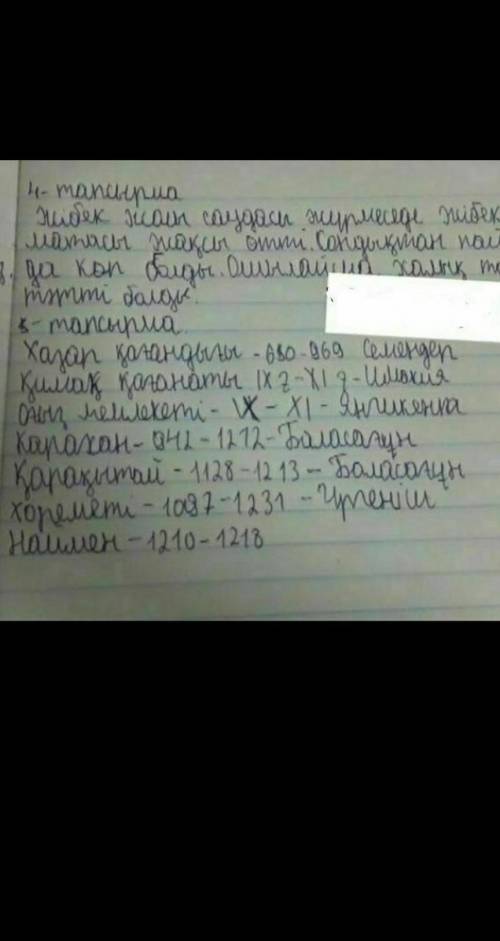 4-тапсырма
Жібек жолы саудасы жүрмеседе жібек
матасы жақсы өтті. Сондықтан
да көп болды. Осылайша халық
тәтті болды.
5-тапсырма
Хазар қағандығы - 630-969 Семендер
Қимақ қағанаты IX ғ - XI ғ - Имакия
Оғыз мемлекеті - IX - XI - Янгикента
Карахан - 942 - 1212 - Баласағұн
Қарақытай - 1128 - 1213 - Баласағұн
Хорематі - 1097 - 1231 - Үргеніш
Наимен - 1210 - 1218